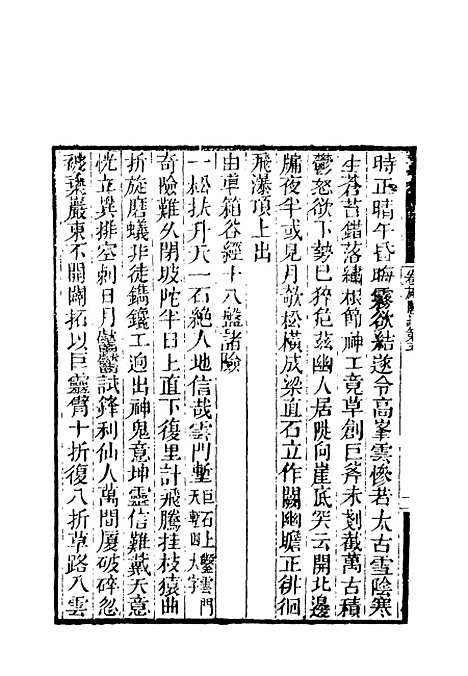 時正晴午昏晦霧欲結遂令高峯雲倏若太古雪陰寒
生蒼苔錯落繡根節神工竟草創巨斧未剗截萬古積
鬱怒欲下勢已猝危茲幽人居陡向崖底突云開北邊
牖夜半或見月欹松橫成梁直石立作闕幽蟾正徘徊
飛瀑頂上出
由車箱谷經十八盤諸險
一松扶升天一石絕人地信哉雲門塹巨石上鑿雲門天塹四大字
奇險難久閉坡陀半日上直下復里計飛騰挂枝猿曲
折旋磨蟻非徒鐫鑱工迥出神鬼意坤靈信難戴天意
恍立異排空刺日月齾齾試鋒利仙人萬間厦破碎忽
襪乘嚴東不開闢拓以巨靈臂十折復八折草路入雲